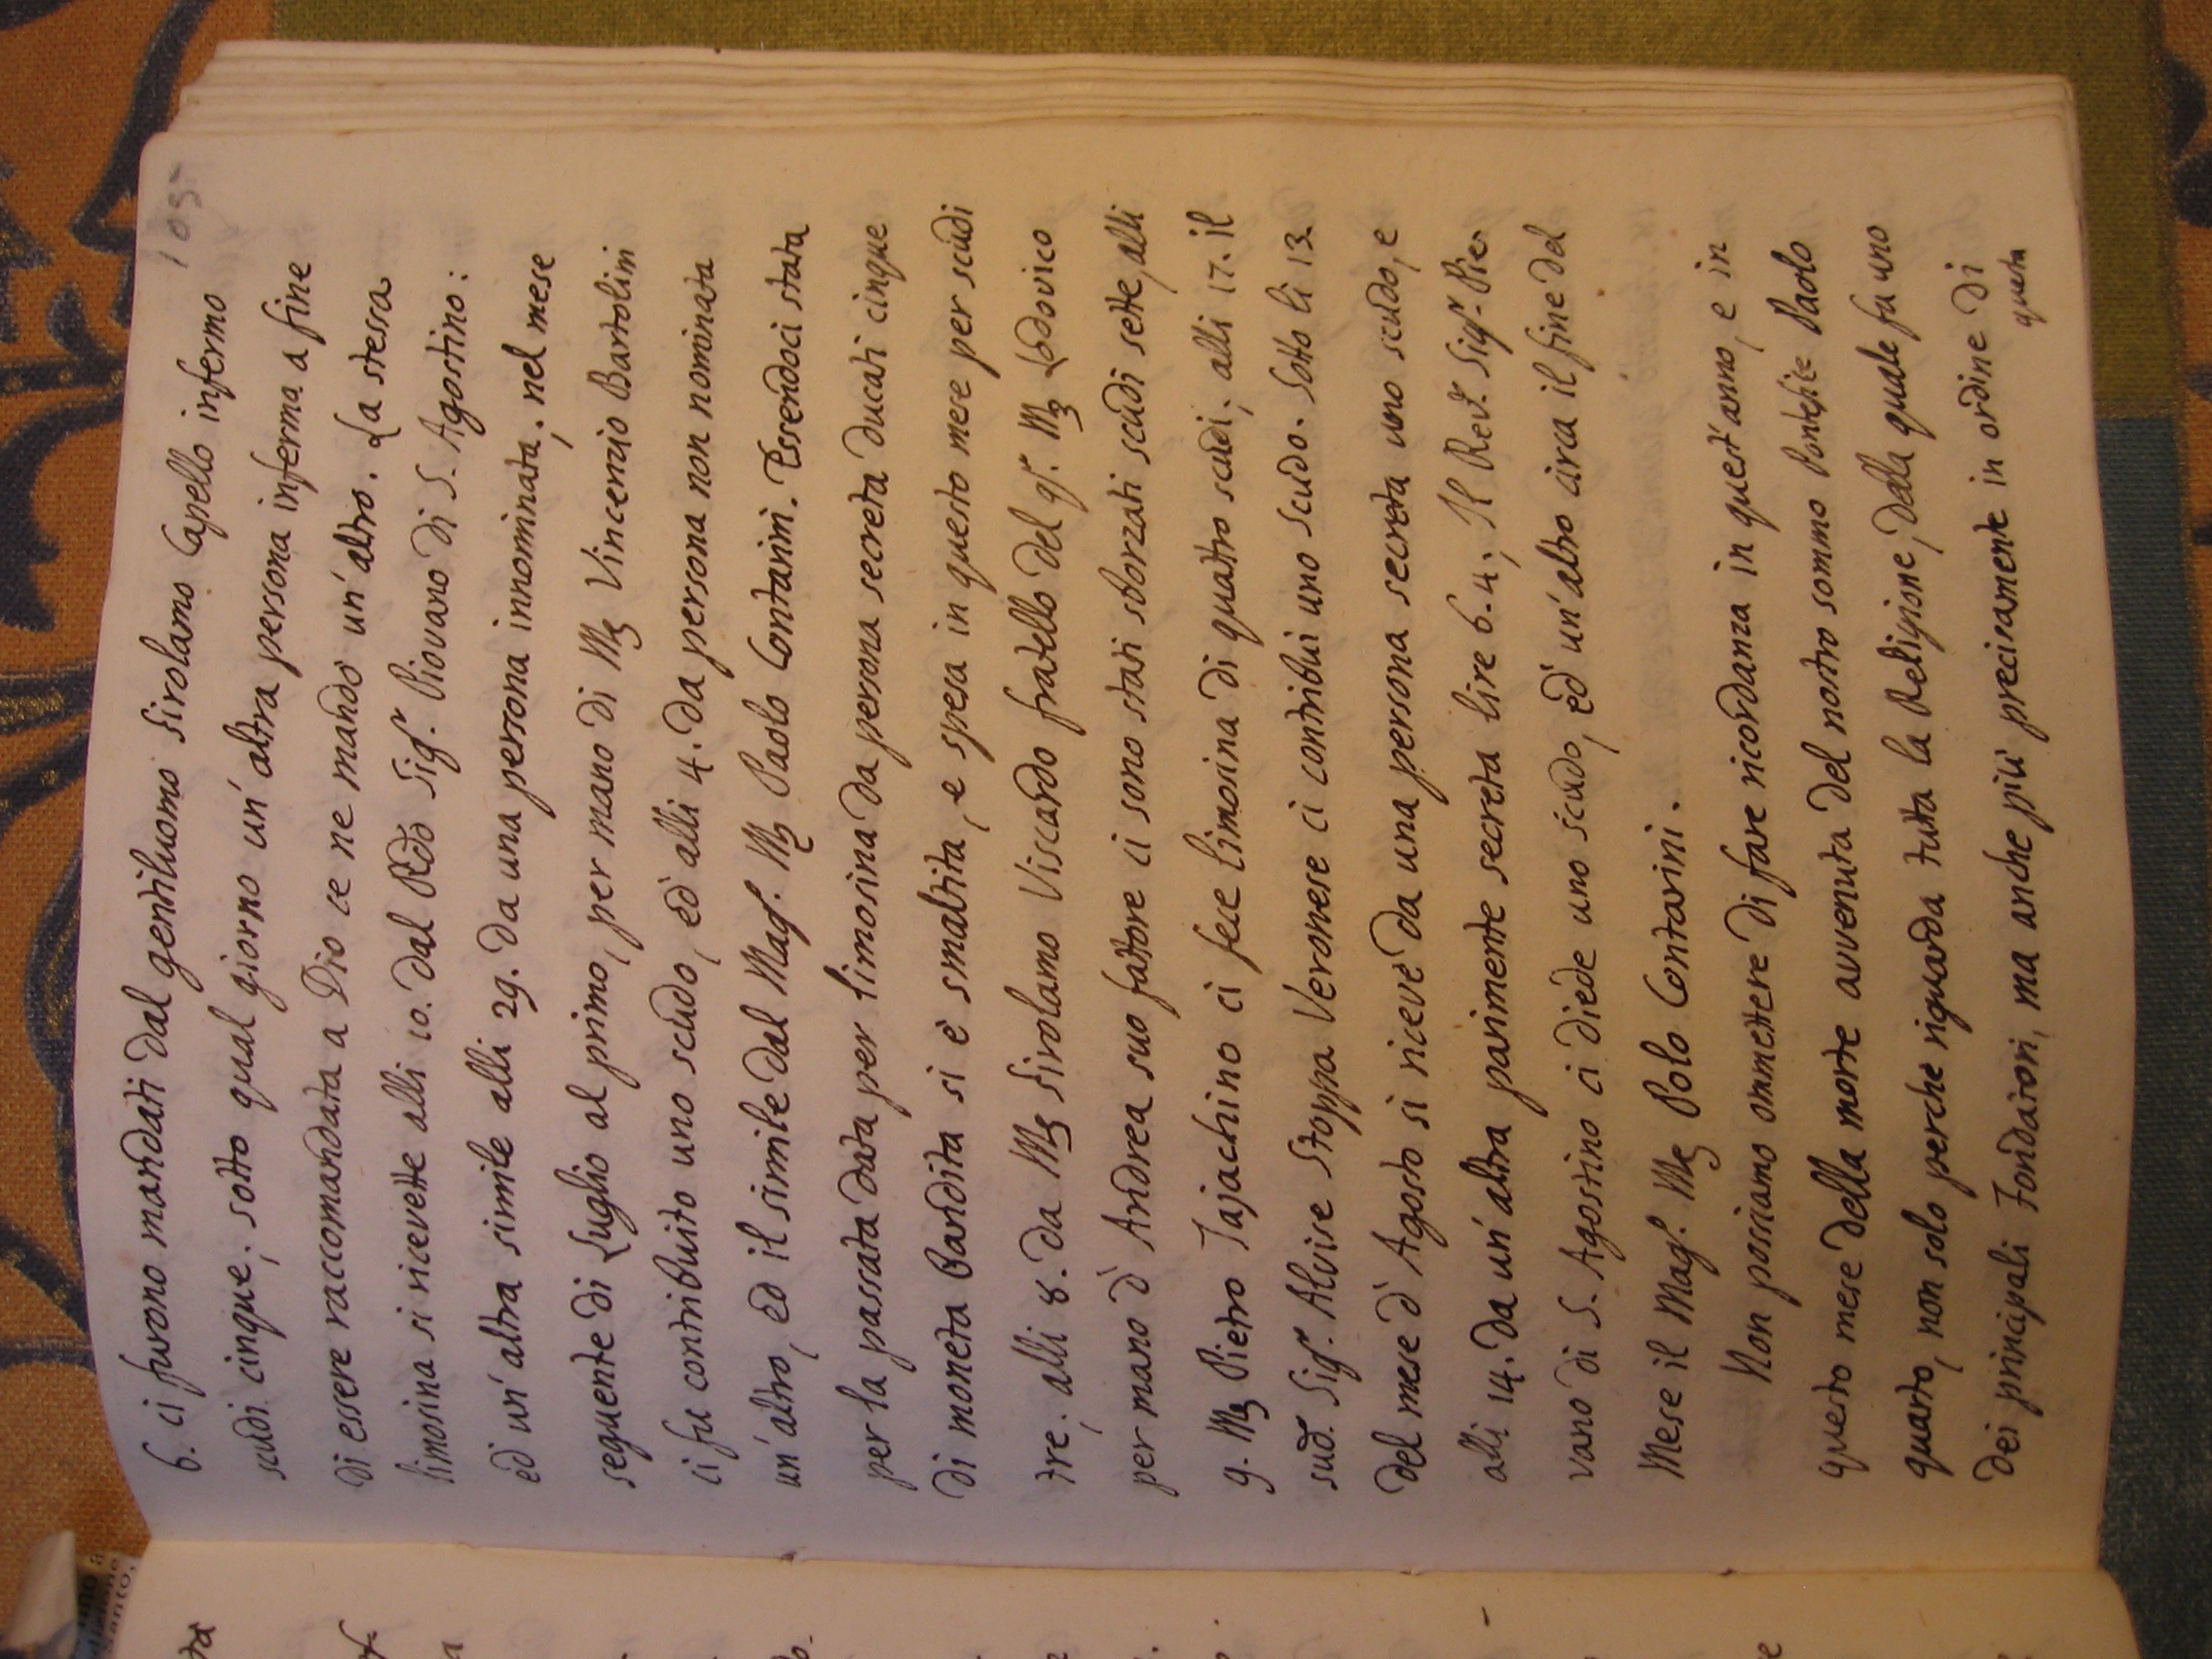 105
6. ci furono mandati dal gentiluomo Girolamo Capello infermo
scudi cinque; sotto qual giorno un'altra persona inferma a fine
di essere raccomandata a Dio ce ne mandò un'altro. La stessa
limosina si ricevette alli 10. dal Rdo Sigr. Piovano di S. Agostino:
ed un'altra simile alli 29. da una persona innominata; nel mese
seguente di Luglio al primo, per mano di Mg Vincenzio Bartolini
ci fu contribuito uno scudo, ed alli 4. da persona non nominata
un'altro, ed il simile dal Magf. Mg Paolo Contarini. Essendoci stata
per la passata data per limosina da persona secreta ducati cinque
di moneta bandita si è smaltita, e spesa in questo mese per scudi
tre; alli 8. da Mg Girolamo Viscardo fratello del qf. Mg Lodovico
per mano d'Andrea suo fattore ci sono stati sborzati scudi sette, alli
9. Mg Pietro Tajachino ci fece limosina di quattro scudi; alli 17. il
sud. Sigr. Alvise Stoppa Veronese ci contribui uno scudo. Sotto li 13.
del mese d'Agosto si riceve da una persona secreta uno scudo, e
alli 14. da un'altra parimente secreta lire 6.4; Il Revd. Sigr. Pio
vano di S. Agostino ci diede uno scudo, ed un'altro circa il fine del
Mese il Magf. Mg Polo Contarini.
Non possiamo ommettere di fare ricordanza in quest'anno, e in
questo mese della morte avvenuta del nostro sommo Pontefice Paolo
quarto, non solo perche riguarda tutta la Religione, della quale fu uno
dei principali Fondatori, ma anche più precisamente in ordine di
questa